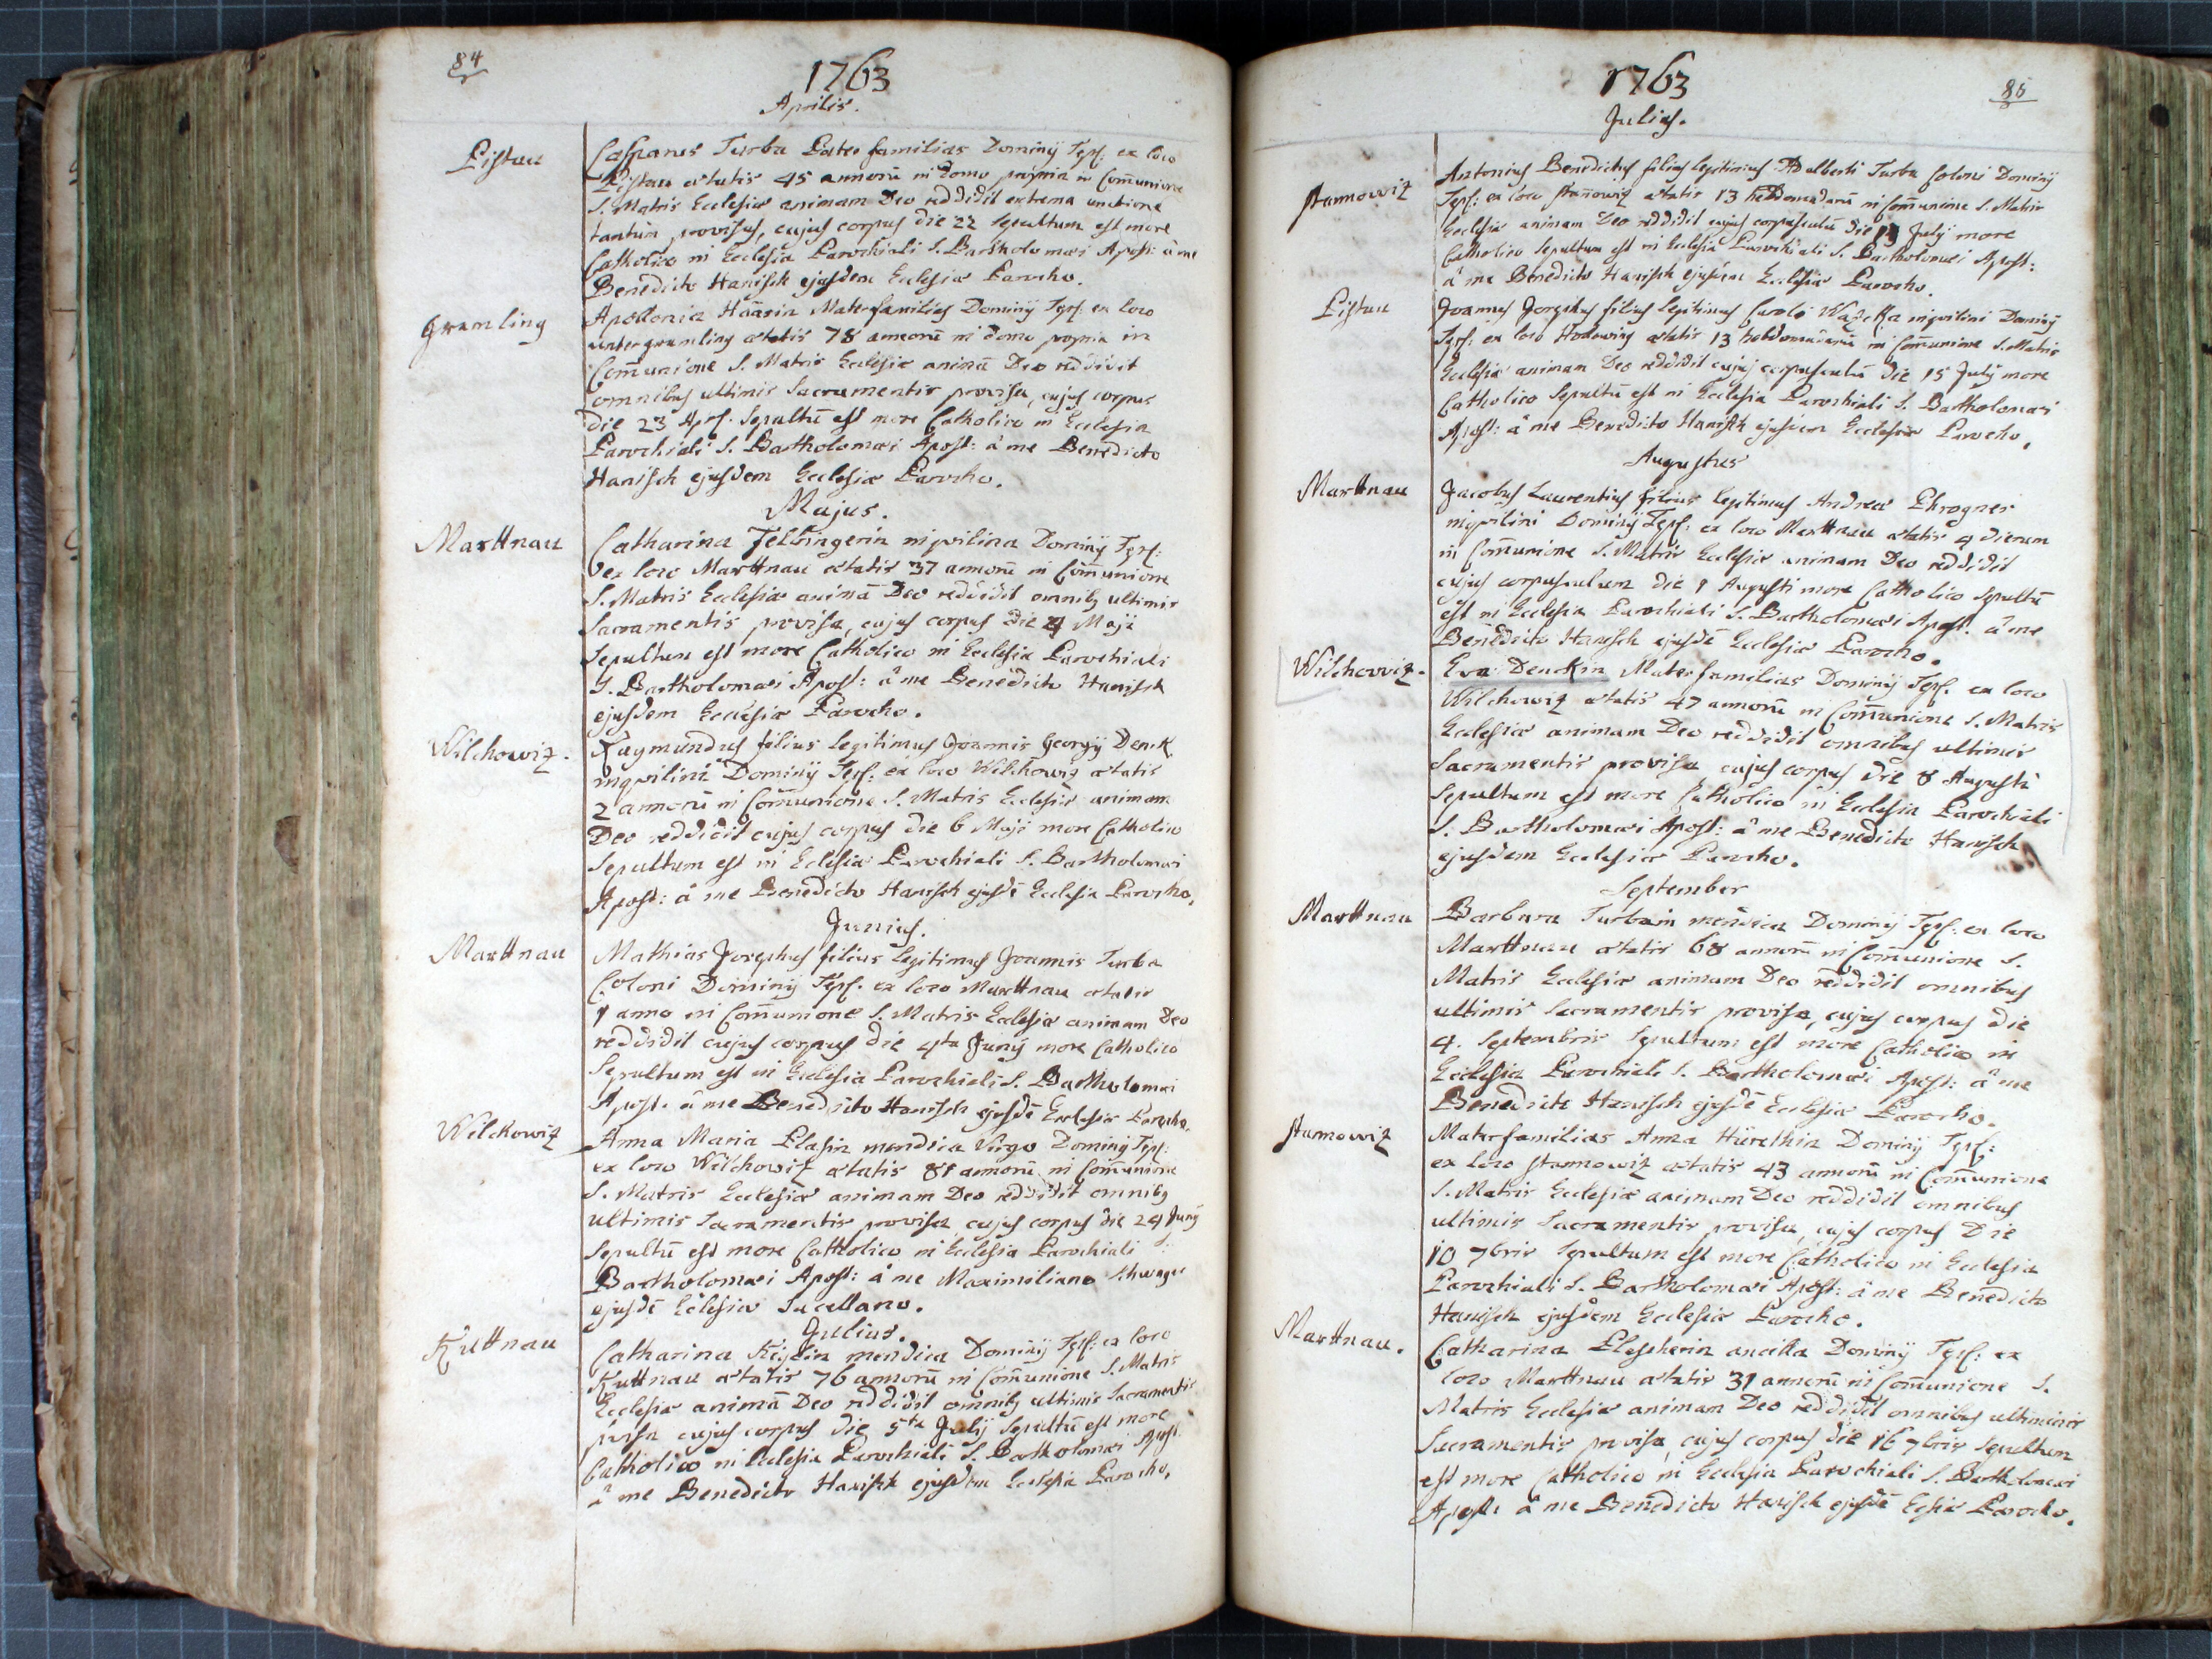 84
1763
Aprilis.
Pistau
Casparus Turba Pater familias Dominÿ Tepl: ex loco
Pistau ætatis 45 annorū in domo propria in Com̄unione
S. Matris Ecclesiæ animam Deo reddidit extrema unctione
tantum provisus, cujus corpus die 22 sepultum est more
Catholico in Ecclesia Parochiali S. Bartholomæi Apost: à me
Benedicto Hanisch ejusdem Ecclesiæ Parocho.
Gramling
Apollonia Haasin Materfamilias Dominÿ Tepl: ex loco
untergramling ætatis 78 annorū in domo propria in
Com̄unione S. Matris Ecclesiæ animā Deo reddidit
omnibus ultimis Sacramentis provisa, cujus corpus
die 23 Apr. Sepultū est more Catholico in Ecclesia
Parochiali S. Bartholomæi Apost: à me Benedicto
Hanisch ejusdem Ecclesiæ Parocho.
Majus.
Marttnau
Catharina Felbingerin inqvilina Dominÿ Tepl:
ex loco Marttnau ætatis 37 annorū in Com̄unione
S. Matris Ecclesiæ animā Deo reddidit omnibꝫ ultimis
Sacramentis provisa, cujus corpus die 4 Maji
Sepultum est more Catholico in Ecclesia Parochiali
S. Bartholomæi Apost: à me Benedicto Hanisch
ejusdem Ecclesiæ Parocho.
Wilchowiz.
Raymundus filius legitimus Joannis Georgÿ Denk
inqvilini Dominÿ Tepl: ex loco Wilchowiz ætatis
2 annorū in Com̄unione S. Matris Ecclesiæ animam
Deo reddidit cujus corpus die 6 Maji more Catholico
Sepultum est in Eclesia Parochiali S. Bartholomæi
Apost: à me Benedicto Hanisch ejusdē Ecclesiæ Parocho.
Junius.
Marttnau
Mathias Josephus filius legitimus Joannis Turba
Coloni Dominÿ Tepl. ex loco Marttnau ætatis
1 anno in Com̄unione S. Matris Ecclesiæ animam Deo
reddidit cujus corpus die 4ta Junÿ more Catholico
Sepultum est in Ecclesia Parochiali S. Bartholomæi
Apost. à me Benedicto Hanisch ejusdē Ecclesiæ Parocho.
Wilckowiz
Anna Maria Plasin mendica Virgo Dominÿ Tepl:
ex loco Wilchowiz ætatis 81 annorū in Com̄unione
S. Matris Ecclesiæ animam Deo reddidit omnibꝫ
ultimis Sacramentis provisa cujus corpus die 24 Junÿ
Sepultū est more Catholico in Ecclesia Parochiali
Bartholomæi Apost: à me Maximiliano Schwager
ejusdē Eclesiæ Sacellano.
Julius.
Kuttnau
Catharina mendica Dominÿ Tepl: ex loco
Kuttnau ætatis 76 annorū in Com̄unione S. Matris
Ecclesiæ animā Deo reddidit omnibꝫ ultimis Sacramentis
cujus corpus die 5ta Julÿ Sepultū est more
Catholico in Eclesia Parochiali S. Bartholomæi Apost.
à me Benedicto Hanisch ejusdem Ecclesiæ Parocho.
1763
85
Julius.
Stannowiz
Antonius Benedictus filius legitimus Adalberti Turba Coloni Dominÿ
Tepl: ex loco Stan̄owiz ætatis 13 hebdomadarū in Com̄unione S. Matris
Ecclesiæ animam Deo reddidit cujus corpusculū die 13 Julÿ more
Catholico Sepultum est in Ecclesia Parochiali S. Bartholomæi Apost:
à me Benedicto Hanisch ejusdem Ecclesiæ Parocho.
Pistau
Joannes Josephus filius legitimus Caroli inqvilini Dominÿ
Tepl: ex loco ætatis 13 hebdomadarū in Com̄unione S. Matris
Ecclesiæ animam Deo reddidit cujus corpusculū die 15 Julÿ more
Catholico Sepultū est in Ecclesia Parochiali S. Bartholomæi
Apost: à me Benedicto Hanisch ejusdem Ecclesiæ Parocho.
Augustus
Marttnau
Jacobus Laurentius filius legitimus Andreæ Phrogner
inqvilini Dominÿ Tepl: ex loco Marttnau ætatis 4 dierum
in Com̄unione S. Matris Ecclesiæ animam Deo reddidit
cujus corpusculum die 1 Augusti more Catholico Sepultū
est in Ecclesia Parochiali S. Bartholomæi Apost. à me
Benedicto Hanisch ejusdē Ecclesiæ Parocho.
Wilchowiz.
Eva Denckin Materfamilias Dominÿ Tepl. ex loco
Wilchowiz ætatis 47 annorū in Com̄unione S. Matris
Ecclesiæ animam Deo reddidit omnibus ultimis
Sacramentis provisa cujus corpus die 8 Augusti
Sepultum est more Catholico in Ecclesia Parochiali
S. Bartholomæi Apost: à me Benedicto Hanisch
ejusdem Ecclesiæ Parocho.
September
Marttnau
Barbara Turbain mendica Dominÿ Tepl: ex loco
Marttnau ætatis 68 annorū in Com̄unione S.
Matris Ecclesiæ animam Deo reddidit omnibus
ultimis Sacramentis provisa, cujus corpus die
4. Septembris Sepultum est more Catholico in
Ecclesia Parochiali S. Bartholomæi Apost: à me
Benedicto Hanisch ejusdē Ecclesiæ Parocho.
Stannowiz
Materfamilias Anna Dominÿ Tepl:
ex loco Stannowiz ætatis 43 annorū in Com̄unione
S. Matris Ecclesiæ animam Deo reddidit omnibus
ultimis Sacramentis provisa, cujus corpus Die
10 7bris Sepultum est more Catholico in Ecclesia
Parochiali S. Bartholomæi Apost: à me Benedicto
Hanisch ejusdem Ecclesiæ Parocho.
Marttnau.
Catharina Plescherin ancilla Dominÿ Tepl: ex
loco Marttnau ætatis 31 annorū in Com̄unione S.
Matris Ecclesiæ animam Deo reddidit omnibus ultimis
Sacramentis provisa cujus corpus die 16 7bris Sepultum
est more Catholico in Ecclesia Parochiali S. Bartholomæi
Apost: à me Benedicto Hanisch ejusdē Eclsiæ Parocho.